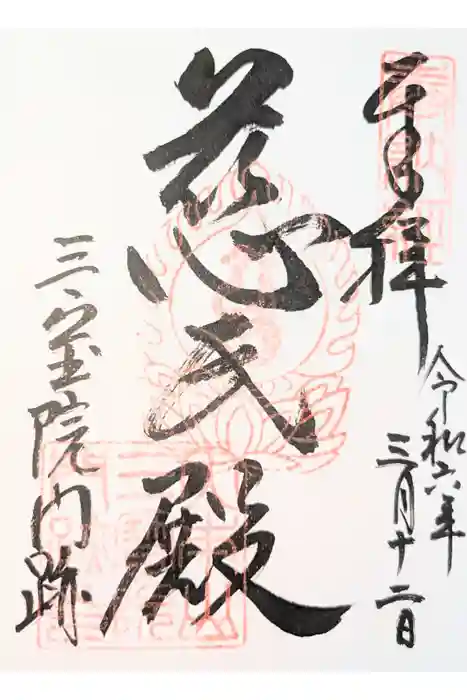 奉拝
令和六年
三月十二日
慈氏殿
三宝院門跡